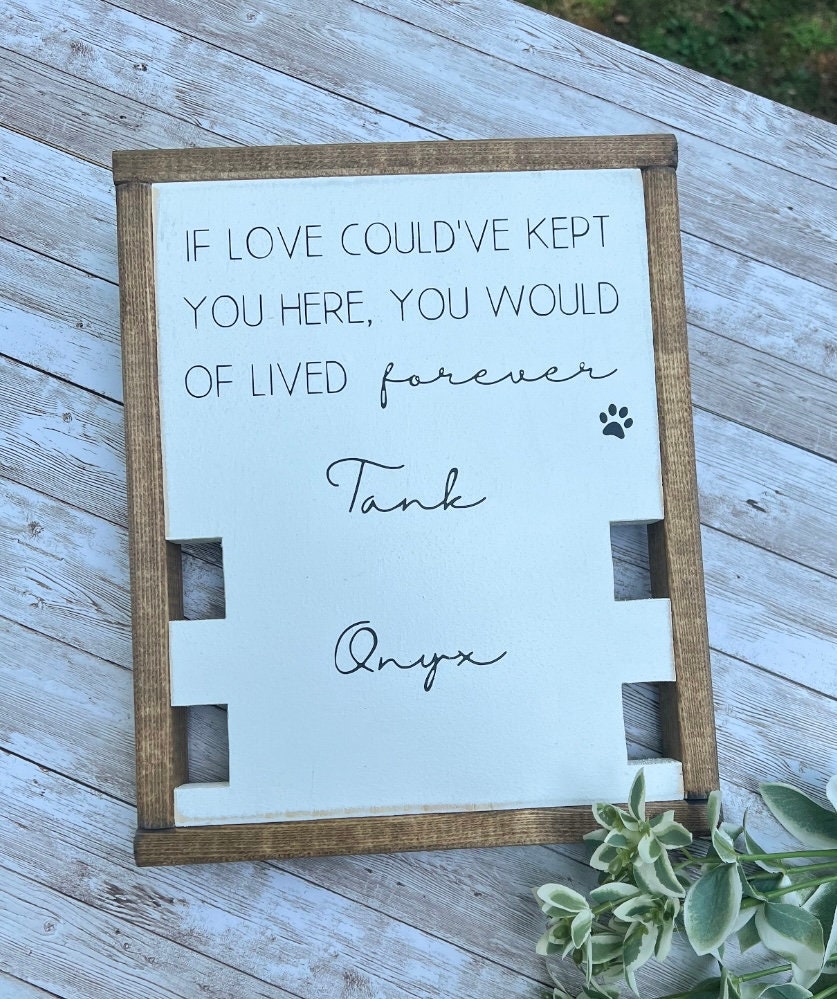 IF LOVE COULD'VE KEPT
YOU HERE, YOU WOULD
OF LIVED forever
Tank
Onyx